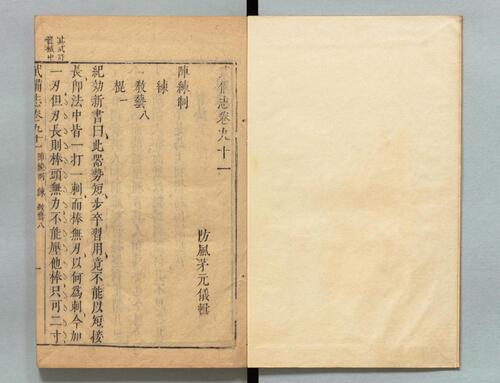 武備志卷九十一
防風茅元儀輯
陣練制
練
教藝八
棍一
紀効新書曰此器勢短步卒習用竟不能以短接
長即法中皆一打一刺而棒無刃以何為刺今加
一刃但刃長則棒頭無力不能壓他棒只可二寸
武備志卷九十一 陣練制 練 教藝八 一